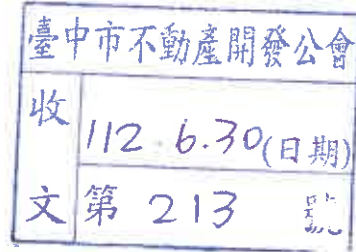 臺中市不動產開發公會
收 112.6.30(日期)
文 第 213 號